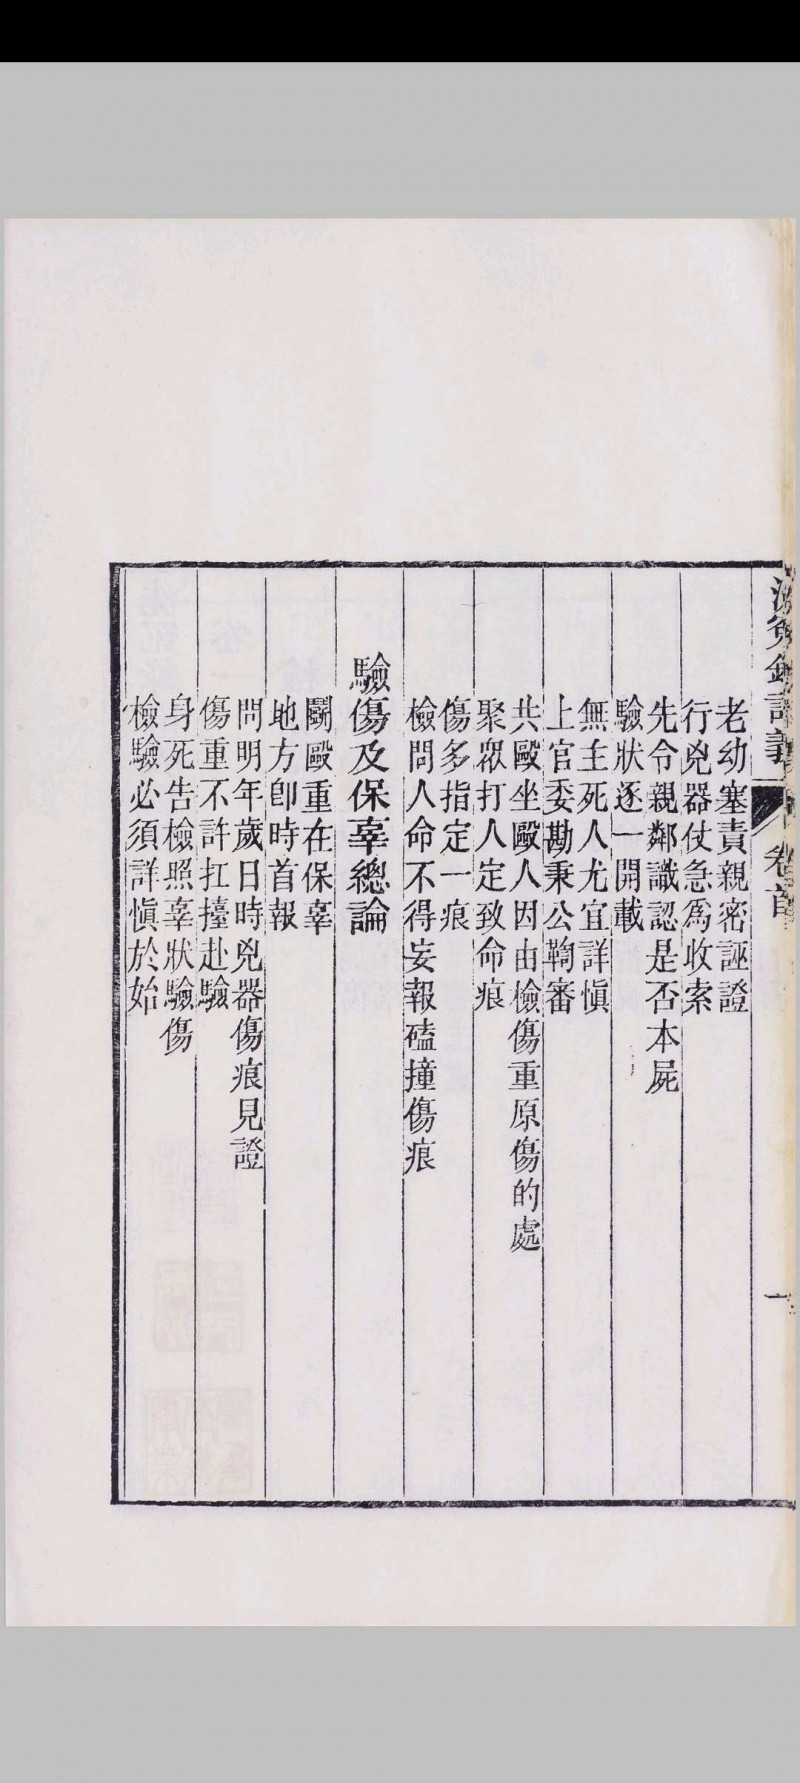 洗冤錄詳義
卷首
老幼塞責親密誣證
行兇器仗急爲收索
先令親鄰識認是否本屍
驗狀逐一開載
無主死人尤宜詳愼
上官委勘秉公鞫審
共毆坐毆人因由檢傷重原傷的處
聚眾打人定致命痕
傷多指定一痕
檢問人命不得妄報磕撞傷痕
驗傷及保辜總論
鬬毆重在保辜
地方卽時首報
問明年歲日時兇器傷痕見證
傷重不許扛擡赴驗
身死告檢照辜狀驗傷
檢驗必須詳愼於始